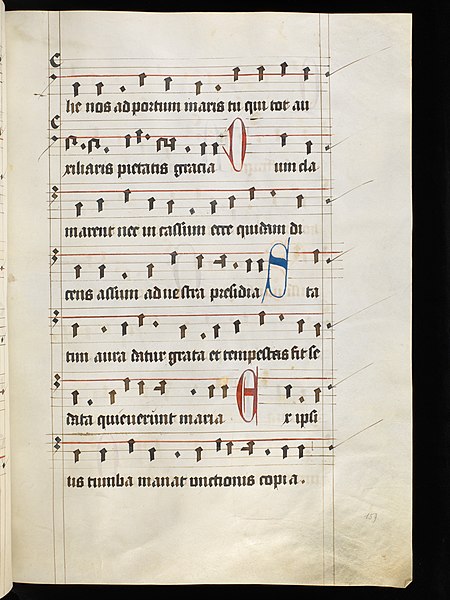 he nos ad portum maris tu qui tot au
xiliaris pietatis gracia Dum cla
marent nec in cassum ecce quidam di
cens assum ad vestra presidia Sta
tim aura datur grata et tempestas fit se
data quieuerunt maria Ex ipsi
us tumba manat vnctionis copia .
153